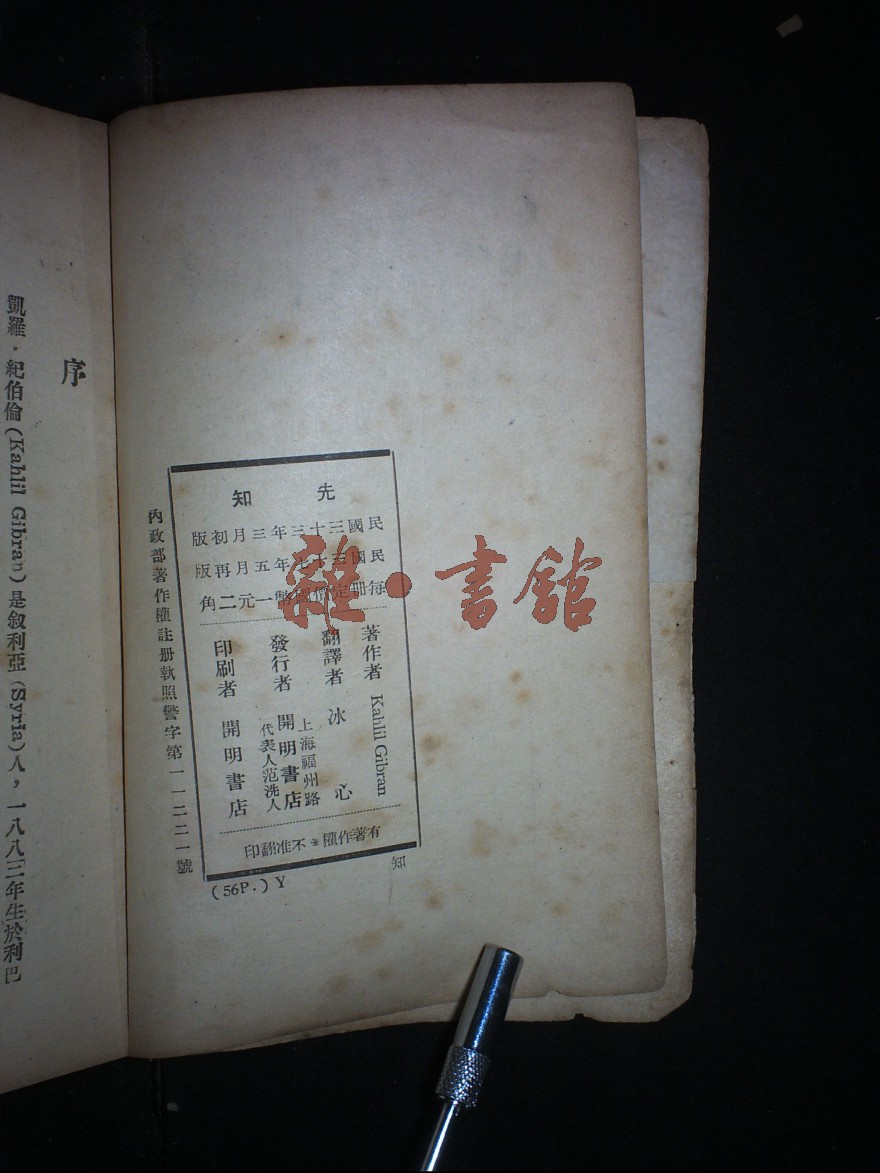 先知
民國三十三年三月初版
民國三十七年五月再版
每冊定價國幣一元二角
著作者 Kahlil Gibran
翻譯者 冰心
發行者 上海福州路
開明書店
代表人范洗人
印刷者 開明書店
有著作權*不准翻印
知
(56P.) Y
內政部著作權註册執照警字第一一二二一號
序
凱羅·紀伯倫(Kahlil Gibran)是敘利亞(Syria)人,一八八三年生於利巴
雜·書館